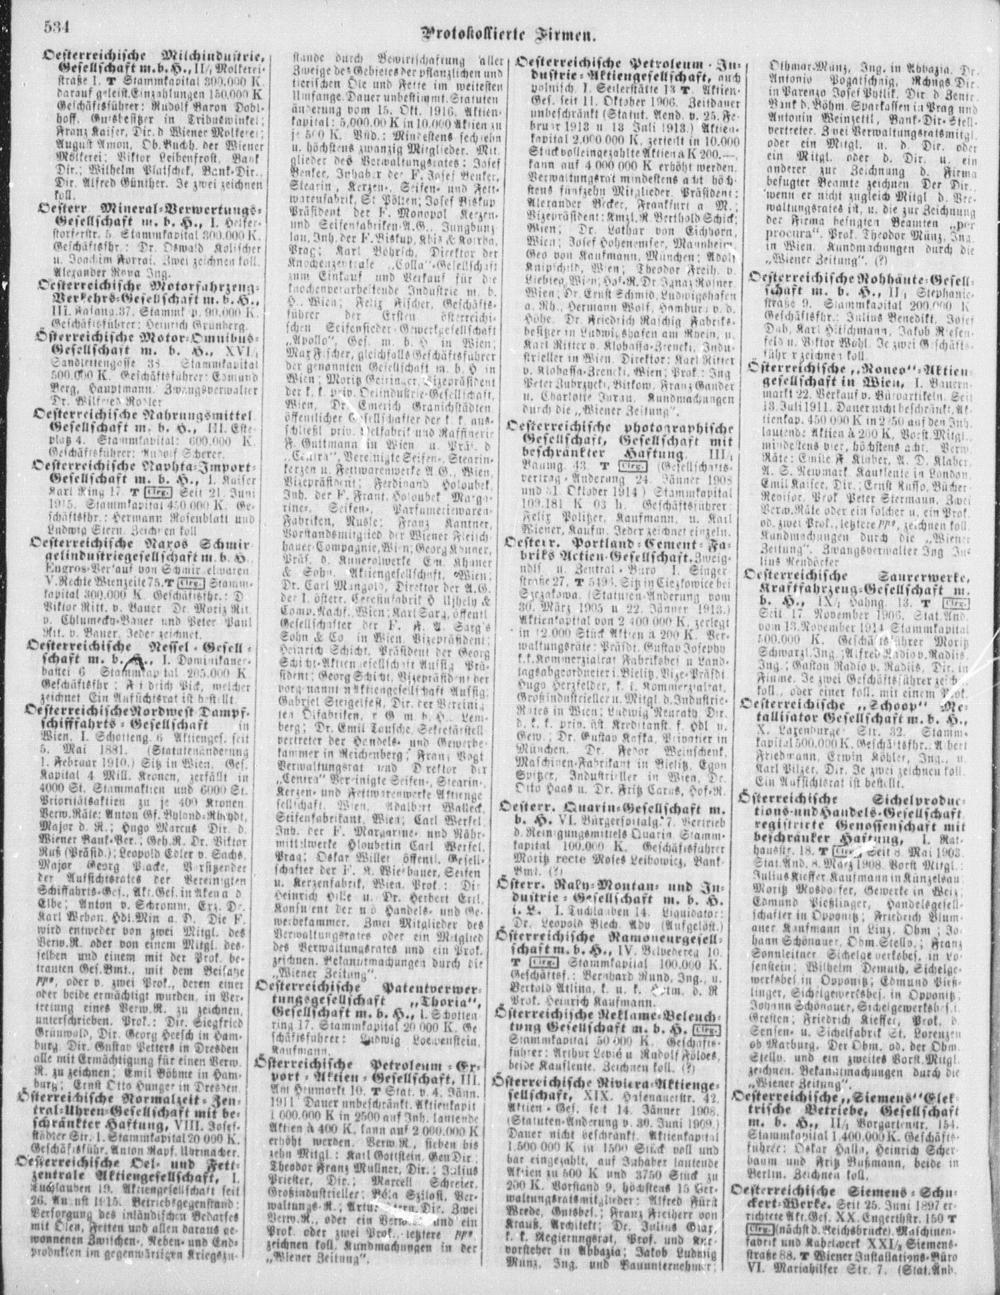 534
Protokollierte Firmen.
Oesterreichische Milchindustrie,
Gesellschaft m. b. H., II/1 Molkerei-
straße 1. T Stammkapital 300.000 K
darauf geleist. Einzahlungen 150.000 K
Geschäftsführer: Rudolf Baron Dobl-
hoff, Gutsbesitzer in Tribuswinkel;
Franz Kaiser, Dir. d Wiener Molkerei;
August Amon, Ob. Buchh. der Wiener
Molkerei; Viktor Leibenfrost, Bank
Dir.; Wilhelm Platschek, Bank-Dir.
Dir. Alfred Günther. Je zwei zeichnen
koll.
Oesterr Mineral-Verwertungs-
Gesellschaft m. b. H., I. Helfer-
storferstr. 5. Stammkapital 300.000 K.
Geschäftsfhr.: Dr. Oswald Kolischer
u. Joachim Forrai. Zwei zeichnen koll.
Alexander Rova Ing.
Oesterreichische Motorfahrzeug-
Verkehrs-Gesellschaft m. b. H.,
III. Fasang. 37. Stammk p. 90.000 K.
Geschäftsführer: Heinrich Grünberg.
Österreichische Motor-Omnibus-
Gesellschaft m. b. H., XVI/1
Sandleitengasse 38. Stammkapital
500.000 K. Geschäftsführer: Edmund
Berg, Hauptmann. Zwangsverwalter
Dr. Wilfried Roller
Oesterreichische Nahrungsmittel
Gesellschaft m. b. H., III. Este-
platz 4. Stammkapital: 600.000 K.
Geschäftsführer: Rudolf Scherer.
Oesterreichische Naphta-Import-
Gesellschaft m. b. H., I. Kaiser
Karl Ring 17. T Clrg. Seit 21. Juni
1915. Stammkapital 450.000 K. Ge-
schäftsfhr.: Hermann Rosenblatt und
Ludwig Stern. Zeichnen koll
Oesterreichische Naxos Schmir-
gelindustriegesellschaft m. b. H.
Engros-Verkauf von Schmirgelwaren
V. Rechte Wienzeile 75. T Clrg. Stamm-
kapital 300.000 K. Geschäftsfhr.: D
Viktor Ritt. v. Bauer Dr. Moriz Rit
v. Chlumecky-Bauer und Peter Paul
Rit. v. Bauer. Jeder zeichnet.
Oesterreichische Nessel-Gesell-
schaft m. b. H., I. Dominikaner-
bastei 6 Stammkapital 205.000 K.
Geschäftsfhr: Friedrich Pick, welcher
zeichnet Ein Aufsichtsrat ist bestellt.
Oesterreichische Nordwest Dampf-
schifffahrts-Gesellschaft in
Wien. I. Schotteng. 6 Aktienges. seit
5. Mai 1881. (Statutenänderung
1. Februar 1910.) Sitz in Wien. Ges.
Kapital 4 Mill. Kronen, zerfällt in
4000 St. Stammaktien und 6000 St.
Prioritätsaktien zu je 400 Kronen
Verw.Räte: Anton Gf. Byland-Rheydt,
Major d. R.; Hugo Marcus Dir. d.
Wiener Bank-Ver.; Geh.R. Dr. Viktor
Ruß (Präsid.); Leopold Edler v. Sachs,
Major Georg Placke, Vorsitzender
der Aufsichtsrates der Vereinigten
Schiffahrts-Ges., Akt. Ges. in Aken a d
Elbe; Anton v. Schromm, Erz. Dr.
Karl Urban, Hdl.Min a. D. Die F.
wird entweder von zwei Mitgl. des
Verw.R. oder von einem Mitgl. des-
selben und einem mit der Prok. be-
trauten Ges.Bmt., mit dem Beisatze
pp°, oder v. zwei Prok., deren einer
oder beide ermächtigt wurden, in Ver-
tretung eines Verw.R. zu zeichnen,
unterschrieben. Prok.: Dir. Siegfried
Grünwald, Dir. Georg Heesch in Ham-
burg; Dir. Gustav Petters in Dresden
alle mit Ermächtigung für einen Verw.
R. zu zeichnen; Emil Böhme in Ham-
burg; Ernst Otto Hunger in Dresden.
Österreichische Normalzeit-Zen-
tral-Uhren-Gesellschaft mit be-
schränkter Haftung, VIII. Josef-
städter Str. 1. Stammkapital 20 000 K.
Geschäftsfhr. Anton Rapf. Uhrmacher.
Oesterreichische Oel- und Fett-
zentrale Aktiengesellschaft, I.
Tuchlauben 19. Aktiengesellschaft seit
26. August 1915. Betriebsgegenstand:
Versorgung des inländischen Bedarfes
mit Ölen, Fetten und allen daraus ge-
wonnenen Zwischen-, Neben- und End-
produkten im gegenwärtigen Kriegszu-
stande durch Bewirtschaftung aller
Zweige des Gebietes der pflanzlichen und
tierischen Öle und Fette im weitesten
Umfange. Dauer unbestimmt. Statuten
änderung vom 15. Okt. 1916. Aktien-
kapital: 5,000.00 K in 10.000 Aktien zu
je 500 K. Vnd.: Mindestens sechzehn
u. höchstens zwanzig Mitglieder. Mit-
glieder des Verwaltungsrates: Josef
Benker, Inhaber der F. Josef Benker,
Stearin, Kerzen-, Seifen- und Fett-
warenfabrik, St Pölten; Josef Biskup
Präsident der F. Monopol Kerzen-
und Seifenfabriken-A.G., Jungbunz
lau, Inh. der F. Biskup, Kbis & Korrba,
Prag; Karl Böhrisch, Direktor der
Knochenzentrale „Colla"-Gesellschaft
zum Einkauf und Verkauf für die
knochenverarbeitende Industrie m. b.
H., Wien; Felix Fischer, Geschäfts-
führer der Ersten österreichi-
schen Seifensieder-Gewerkgesellschaft
„Apollo", Ges. m. b. H in Wien;
Max Fischer, gleichfalls Geschäftsführer
der genannten Gesellschaft m. b. H in
Wien; Moritz Geiringer, Vizepräsident
der k. k. priv. Oelindustrie-Gesellschaft,
Wien, Dr. Emerich Granichstädten,
öffentlicher Gesellschafter der k. k. aus-
schließl priv. Oelfabrik und Raffinerie
F. Guttmann in Wien u. Präs. d
„Centra", Vereinigte Seifen-, Stearin-
kerzen u. Fettwarenwerke A G., Wien,
Vizepräsident; Ferdinand Holoubek,
Inh. der F. Frant. Holoubek Marga-
rine-, Seifen-, Parfumeriewaren-
Fabriken, Nusle; Franz Kantner,
Vorstandsmitglied der Wiener Fleisch-
hauer-Compagnie, Wien; Georg Khuner,
Präs. d. Kunerolwerke Em. Khuner
& Sohn, Aktiengesellschaft, Wien;
Dr. Carl Mingold, Direktor der A.G.
der I. österr. Ceresinfabrik H Ujhely &
Comp. Nachf. Wien; Karl Sarg, öffentl
Gesellschafter der F. F. A. Sarg's
Sohn & Co. in Wien, Vizepräsident;
Heinrich Schicht, Präsident der Georg
Schicht-Aktiengesellschaft Aussig; Prä-
sident; Georg Schicht, Vizepräsident der
vorgenannten Aktiengesellschaft Aussig;
Gabriel Steigelfest, Dir. der Vereinig-
ten Ölfabriken, r G m b. H., Lem-
berg; Dr. Emil Tousche, Sekretärstell
vertreter der Handels- und Gewerbe-
kammer in Reichenberg; Franz Vogt
Verwaltungsrat und Direktor der
„Centra" Vereinigte Seifen-, Stearin-
Kerzen- und Fettwarenwerke Aktienge-
sellschaft, Wien, Adalbert Walleck,
Seifenfabrikant, Wien; Carl Wersel,
Inh. der F. Margarine- und Nähr-
mittelwerke Hloubetin Carl Wersel,
Prag; Oskar Willer öffentl. Gesell-
schafter der F. A. Wiesbauer, Seifen
u. Kerzenfabrik, Wien. Prok.: Dr
Heinrich Hille u. Dr. Herbert Ertl,
Konsulent der n ö Handels- und Ge-
werbekammer. Zwei Mitglieder des
Verwaltungsrates oder ein Mitglied
des Verwaltungsrates und ein Prok.
zeichnen. Bekanntmachungen durch die
„Wiener Zeitung".
Oesterreichische Patentverwer-
tungsgesellschaft „Thoria",
Gesellschaft m. b. H., I. Schotten-
ring 17. Stammkapital 20 000 K. Ge
schäftsführer: Ludwig Loewenstein,
Kaufmann.
Österreichische Petroleum-Ex-
port-Aktien-Gesellschaft, III.
Am Heumarkt 10. T Stat. v. 4. Jänn.
1911. Dauer unbeschränkt. Aktienkapit
1 000.000 K in 2500 auf Inh. lautende
Aktien à 400 K, kann auf 2 000.000 K
erhöht werden. Verw.R., sieben bis
zehn Mitgl.: Karl Gottstein, Gen Dir.;
Theodor Franz Mullner, Dir.; Julius
Priester, Dir.; Marcell Schreier,
Großindustrieller; Béla Szilasi, Ver-
waltungs-R.; Artur Stern, Dir. Zwei
Verw.R., oder ein Verw.R. und ein
Prok. oder zwei Prok., letztere pp°
zeichnen koll. Kundmachungen in der
„Wiener Zeitung".
Oesterreichische Petroleum-In-
dustrie-Aktiengesellschaft, auch
polnisch, I. Seilerstätte 13 T. Aktien-
Ges. seit 11. Oktober 1906. Zeitdauer
unbeschränkt (Statut. Aend. v. 25. Fe-
bruar 1913 u 13 Juli 1913.) Aktien-
kapital 2.000 000 K, zerteilt in 10.000
Stück volleingezahlte Aktien à K 200.—,
kann auf 4.000 000 K erhöht werden.
Verwaltungsrat mindestens acht höch-
stens fünfzehn Mitglieder. Präsident:
Alexander Becker, Frankfurt a M.,
Vizepräsident: Kmzl. R Berthold Schick;
Wien; Dr. Lothar von Eichhorn,
Wien; Josef Hohenemser, Mannheim
Geo von Kaufmann, München; Adolf
Knipschild, Wien; Theodor Freih. v.
Liebieg, Wien; Hof-R. Dr Ignaz Rosner.
Wien; Dr. Ernst Schmid, Ludwigshafen
a Rh., Hermann Wolf, Hamburg v. d.
Höhe. Dr. Friedrich Raschig Fabriks-
besitzer in Ludwigshafen am Rhein, u.
Karl Ritter v. Klobassa-Zrencki, Indu-
strieller in Wien. Direktor: Karl Ritter
v. Klobassa-Zrencki, Wien; Prok.: Ing
Peter Zubrzycki, Bitkow, Franz Gander
u. Charlotte Juran. Kundmachungen
durch die „Wiener Zeitung".
Oesterreichische photographische
Gesellschaft, Gesellschaft mit
beschränkter Haftung, III/1
Baumg. 43. T Clrg. (Gesellschafts-
vertrag-Änderung 24 Jänner 1908
und 31. Oktober 1914) Stammkapital
109.181 K 03 h. Geschäftsführer:
Felix Politzer, Kaufmann, u. Karl
Wiener, Kaufm. Jeder zeichnet einzeln.
Oesterr. Portland-Cement-Fa-
briks Actien-Gesellschaft. Zweig-
ndls. u. Zentral-Büro I. Singer
straße 27. T 5195. Sitz in Ciezkowice bei
Szczakowa. (Statuten-Änderung vom
30. März 1905 u 22. Jänner 1913.)
Aktienkapital von 2 400 000 K. zerlegt
in 12.000 Stück Aktien à 200 K. Ver-
waltungsräte: Präsid: Gustav Josephy
k.k. Kommerzialrat Fabriksbes u Land-
tagsabgeordneter i. Bielitz, Vize-Präsid:
Hugo Herzfelder, k. k. Kommerzialrat,
Großindustrieller u. Mitgl d. Industrie-
Rates in Wien; Ludwig Neurath Dir.
d. k. k. priv. öst Kreditanst. f. Hdl u.
Gew.; Dr. Gustav Kafka, Privatier in
München. Dr. Fedor Weinschenk,
Maschinen-Fabrikant in Bielitz, Egon
Spitzer, Industrieller in Wien, Dr.
Otto Haas u. Dr. Fritz Carus, Hof-R.
Oesterr. Quarin-Gesellschaft m.
b. H. VI. Bürgerspitalg. 7. Vertrieb
d. Reinigungsmittels Quarin Stamm-
kapital 100.000 K. Geschäftsführer
Moritz recte Moses Leibowitz, Bank-
Bmt. (?)
Österr. Raky-Montan- und In-
dustrie-Gesellschaft m. b. H.
i. L. I. Tuchlauben 14. Liquidator:
Dr. Leopold Blech, Adv (Aufgelöst.)
Österreichische Ramoneurgesell-
schaft m. b. H., IV. Belvedereg. 10.
T Clrg. Stammkapital 100.000 K.
Geschäftsf.: Bernhard Rund, Ing. u.
Bertold Atlina, k. u. k. Rittm. d. R
Prok. Heinrich Kaufmann.
Österreichische Reklame-Beleuch-
tung Gesellschaft m. b. H. Clrg.
Stammkapital 50 000 K. Geschäfts-
führer: Arthur Lewié u Rudolf Földes,
beide Kaufleute. Zeichnen koll. (?)
Österreichische Riviera-Aktienge-
sellschaft, XIX. Hasenauerstr. 42.
Aktien-Ges. seit 14. Jänner 1908.
(Statuten-Änderung v. 30. Juni 1909.)
Dauer nicht beschränkt. Aktienkapital
1.500.000 K in 1500 Stück voll und
bar eingezahlt, auf Inhaber lautende
Aktien zu 500 K und 3750 Stück zu
200 K. Vorstand 9, höchstens 15 Ver-
waltungsratsmitglieder: Alfred Fürst
Wrede, Gutsbes.; Franz Freiherr von
Krauß, Architekt; Dr. Julius Glax,
k. k. Regierungsrat, Prof. und Kur-
vorsteher in Abbazia; Jakob Ludwig
Münz, Ing. und Bauunternehmer;
Othmar-Münz, Ing. in Abbazia, Dr.
Antonio Pogatschnig, Rchngs Dir.
in Parenzo Josef Pytlik, Dir d Zentr.
Bank d. Böhm. Sparkassen in Prag und
Antonin Weinzettl, Bank-Dir.-Stell-
vertreter. Zwei Verwaltungsratsmitgl.
oder ein Mitgl. u. d. Dir. oder
ein Mitgl. oder d. Dir. u. ein
anderer zur Zeichnung d. Firma
befugter Beamte zeichnen. Der Dir.,
wenn er nicht zugleich Mitgl d. Ver-
waltungsrates ist, u. die zur Zeichnung
der Firma befugten Beamten „per
procura". Prok. Theodor Münz, Ing.
in Wien. Kundmachungen durch die
„Wiener Zeitung". (?)
Oesterreichische Rohhäute-Gesell-
schaft m. b. H., II/1 Stephanie-
straße 9. Stammkapital 200.000 K
Geschäftsfhr.: Julius Benedikt, Josef
Dub, Karl Hirschmann, Jakob Rosen-
feld u. Viktor Wohl. Je zwei Geschäfts-
führer zeichnen koll.
Österreichische „Roneo"-Aktien-
gesellschaft in Wien, I. Bauern-
markt 22. Verkauf v. Büroartikeln. Seit
13. Juli 1911. Dauer nicht beschränkt, Ak-
tienkap. 450.000 K in 2250 auf den Inh.
lautende Aktien à 200 K, Vorst. Mitgl.,
mindestens vier, höchstens acht. Verw.
Räte: Emile F. Klaber, A. D. Klaber,
A. S. Newmark, Kaufleute in London,
Emil Kaiser, Dir.; Ernst Russo, Bücher-
Revisor. Prok Peter Stermann. Zwei
Verw.Räte oder ein solcher u. ein Prok.
od. zwei Prok., letztere pp°, zeichnen koll
Kundmachungen durch die „Wiener
Zeitung". Zwangsverwalter Ing Ju-
lius Reudöcker
Oesterreichische Saurerwerke,
Kraftfahrzeug-Gesellschaft m.
b. H., IX/1 Hahng. 13. T Clrg.
Seit 17. November 1906. Stat. And.
vom 13. November 1914 Stammkapital
500.000 K. Geschäftsführer Moritz
Schwarz, Ing.; Alfred Radio v. Radiis,
Ing.; Gaston Radio v. Radiis, Dir. in
Fiume. Je zwei Geschäftsführer zeich.
koll., oder einer koll. mit einem Prok.
Österreichische „Schoop" Me-
tallisator Gesellschaft m. b. H.,
X. Laxenburger Str. 32. Stamm-
kapital 500.000 K. Geschäftsfhr. Albert
Friedmann, Erwin Köhler, Ing., u.
Karl Pilzer, Dir. Je zwei zeichnen koll.
Ein Aufsichtsrat ist bestellt.
Österreichische Sichelproduc-
tions- und Handels-Gesellschaft
registrierte Genossenschaft mit
beschränkter Haftung, I. Rat-
hausstr. 18. T Clrg. Seit 8 Mai 1903.
Stat. And. 8. März 1908. Vorst. Mitgl.:
Julius Kieffer Kaufmann in Künzelau;
Moritz Mosdorfer, Gewerke in Weiz;
Edmund Pießlinger, Handelsgesell-
schafter in Opponitz; Friedrich Blum-
auer Kaufmann in Linz, Obm.; Jo-
hann Schönauer, Obm. Stellv.; Franz
Sonnleitner Sichelgewerksbes. in Op-
lenstein; Wilhelm Demuth, Sichelge-
werksbes. in Opponitz; Edmund Pieß-
linger, Sichelgewerksbes. in Opponitz;
Johann Schönauer, Sichelgewerksbes. i.
Gresten; Friedrich Kieffer, Prok. d
Sensen- u. Sichelfabrik St. Lorenzen
ob Marburg. Der Obm. od. der Obm.
Stellv. und ein zweites Vorst. Mitgl.
zeichnen. Bekanntmachungen durch die
„Wiener Zeitung".
Oesterreichische „Siemens" Elek-
trische Betriebe, Gesellschaft
m. b. H., II/1 Vorgartenstr. 154.
Stammkapital 1.400.000 K. Geschäfts-
führer: Oskar Halla, Heinrich Scher-
baum und Fritz Bußmann, beide in
Berlin. Zeichnen koll.
Oesterreichische Siemens-Schu-
ckert-Werke. Seit 25. Juni 1897 er-
richtete Akt. Ges. XX. Engerthstr. 150 T
Clrg. (nächst d. Reichsbrücke). Maschinen-
fabrik und Kabelwerk XXI/2 Siemens-
straße 88. T Wiener Installations-Büro
VI. Mariahilfer Str. 7. (Stat. And.